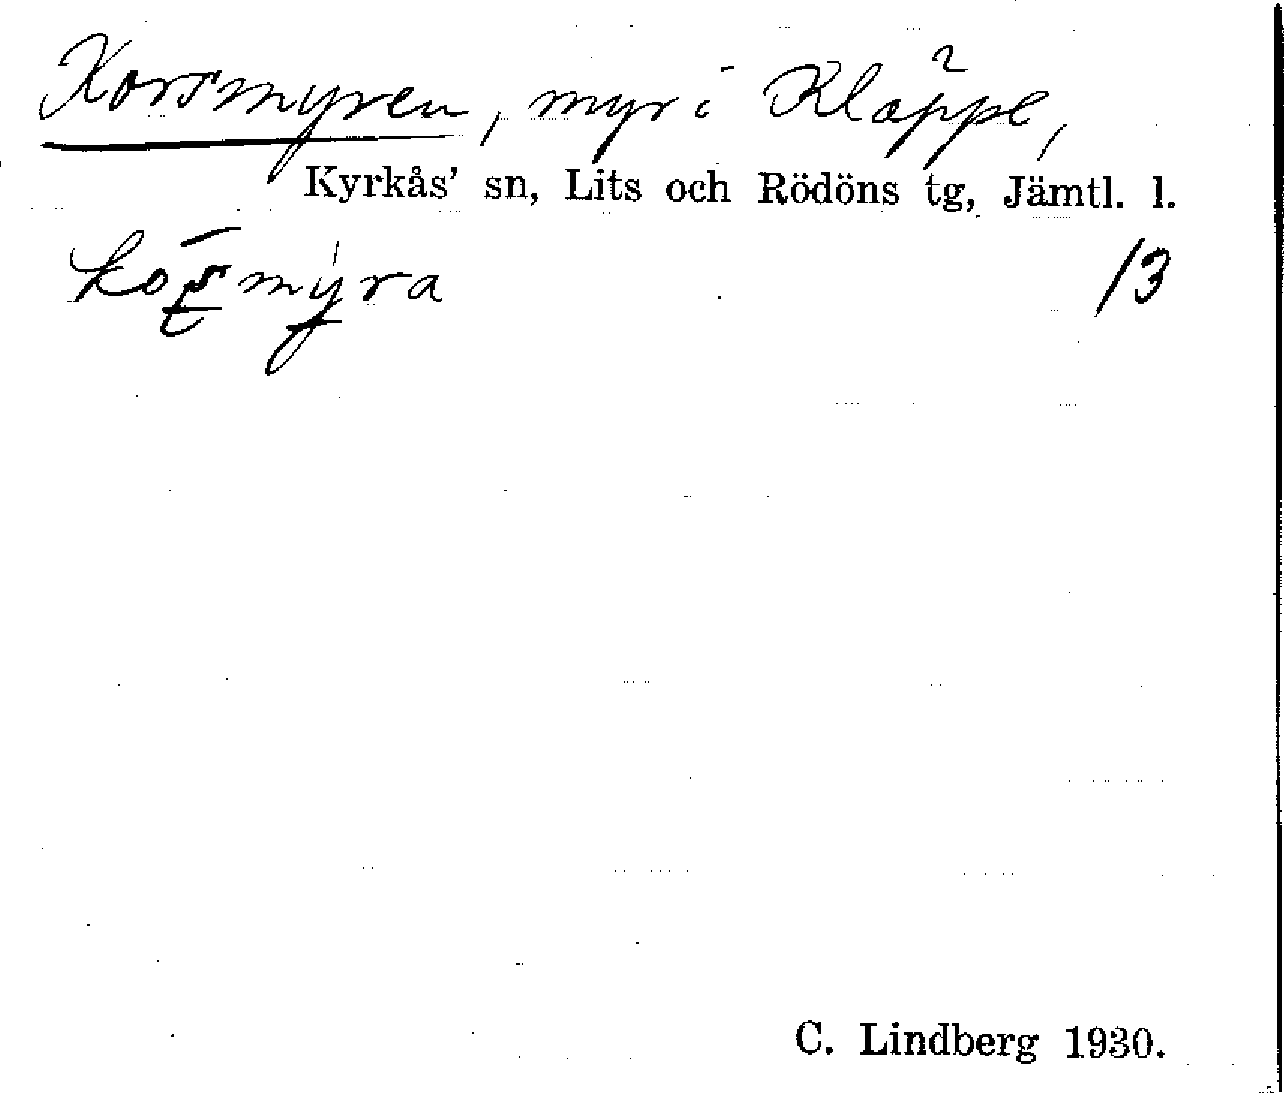 Korsmyren, myr i Kläppe,
Kyrkås' sn, Lits och Rödöns tg, Jämtl. l.
/3
C. Lindberg 1930.